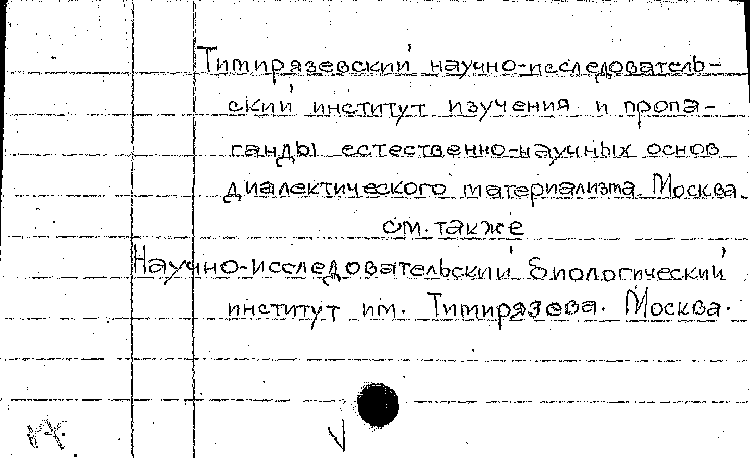 Тимирязевский научно-исследователь-
ский институт изучения и пропа-
ганды естественно-научных основ
диалектического материализма. Москва.
см. также
Научно-исследовательский биологический
институт им. Тимирязева. Москва.